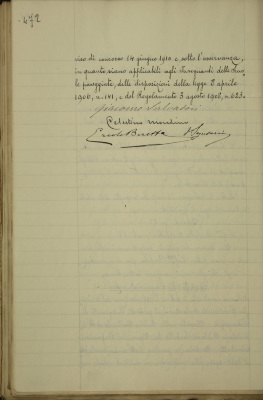 472
viso di concorso 14 giugno 1910 e sotto l'osservanza,
in quanto siano applicabili agli Insegnanti delle Scuo
le pareggiate, delle disposizioni della legge 8 aprile
1906, n. 141, e del Regolamento 3 agosto 1908, n. 623.
Giacomo Salvadori
Celestino Mondino
Ercole Bicotta